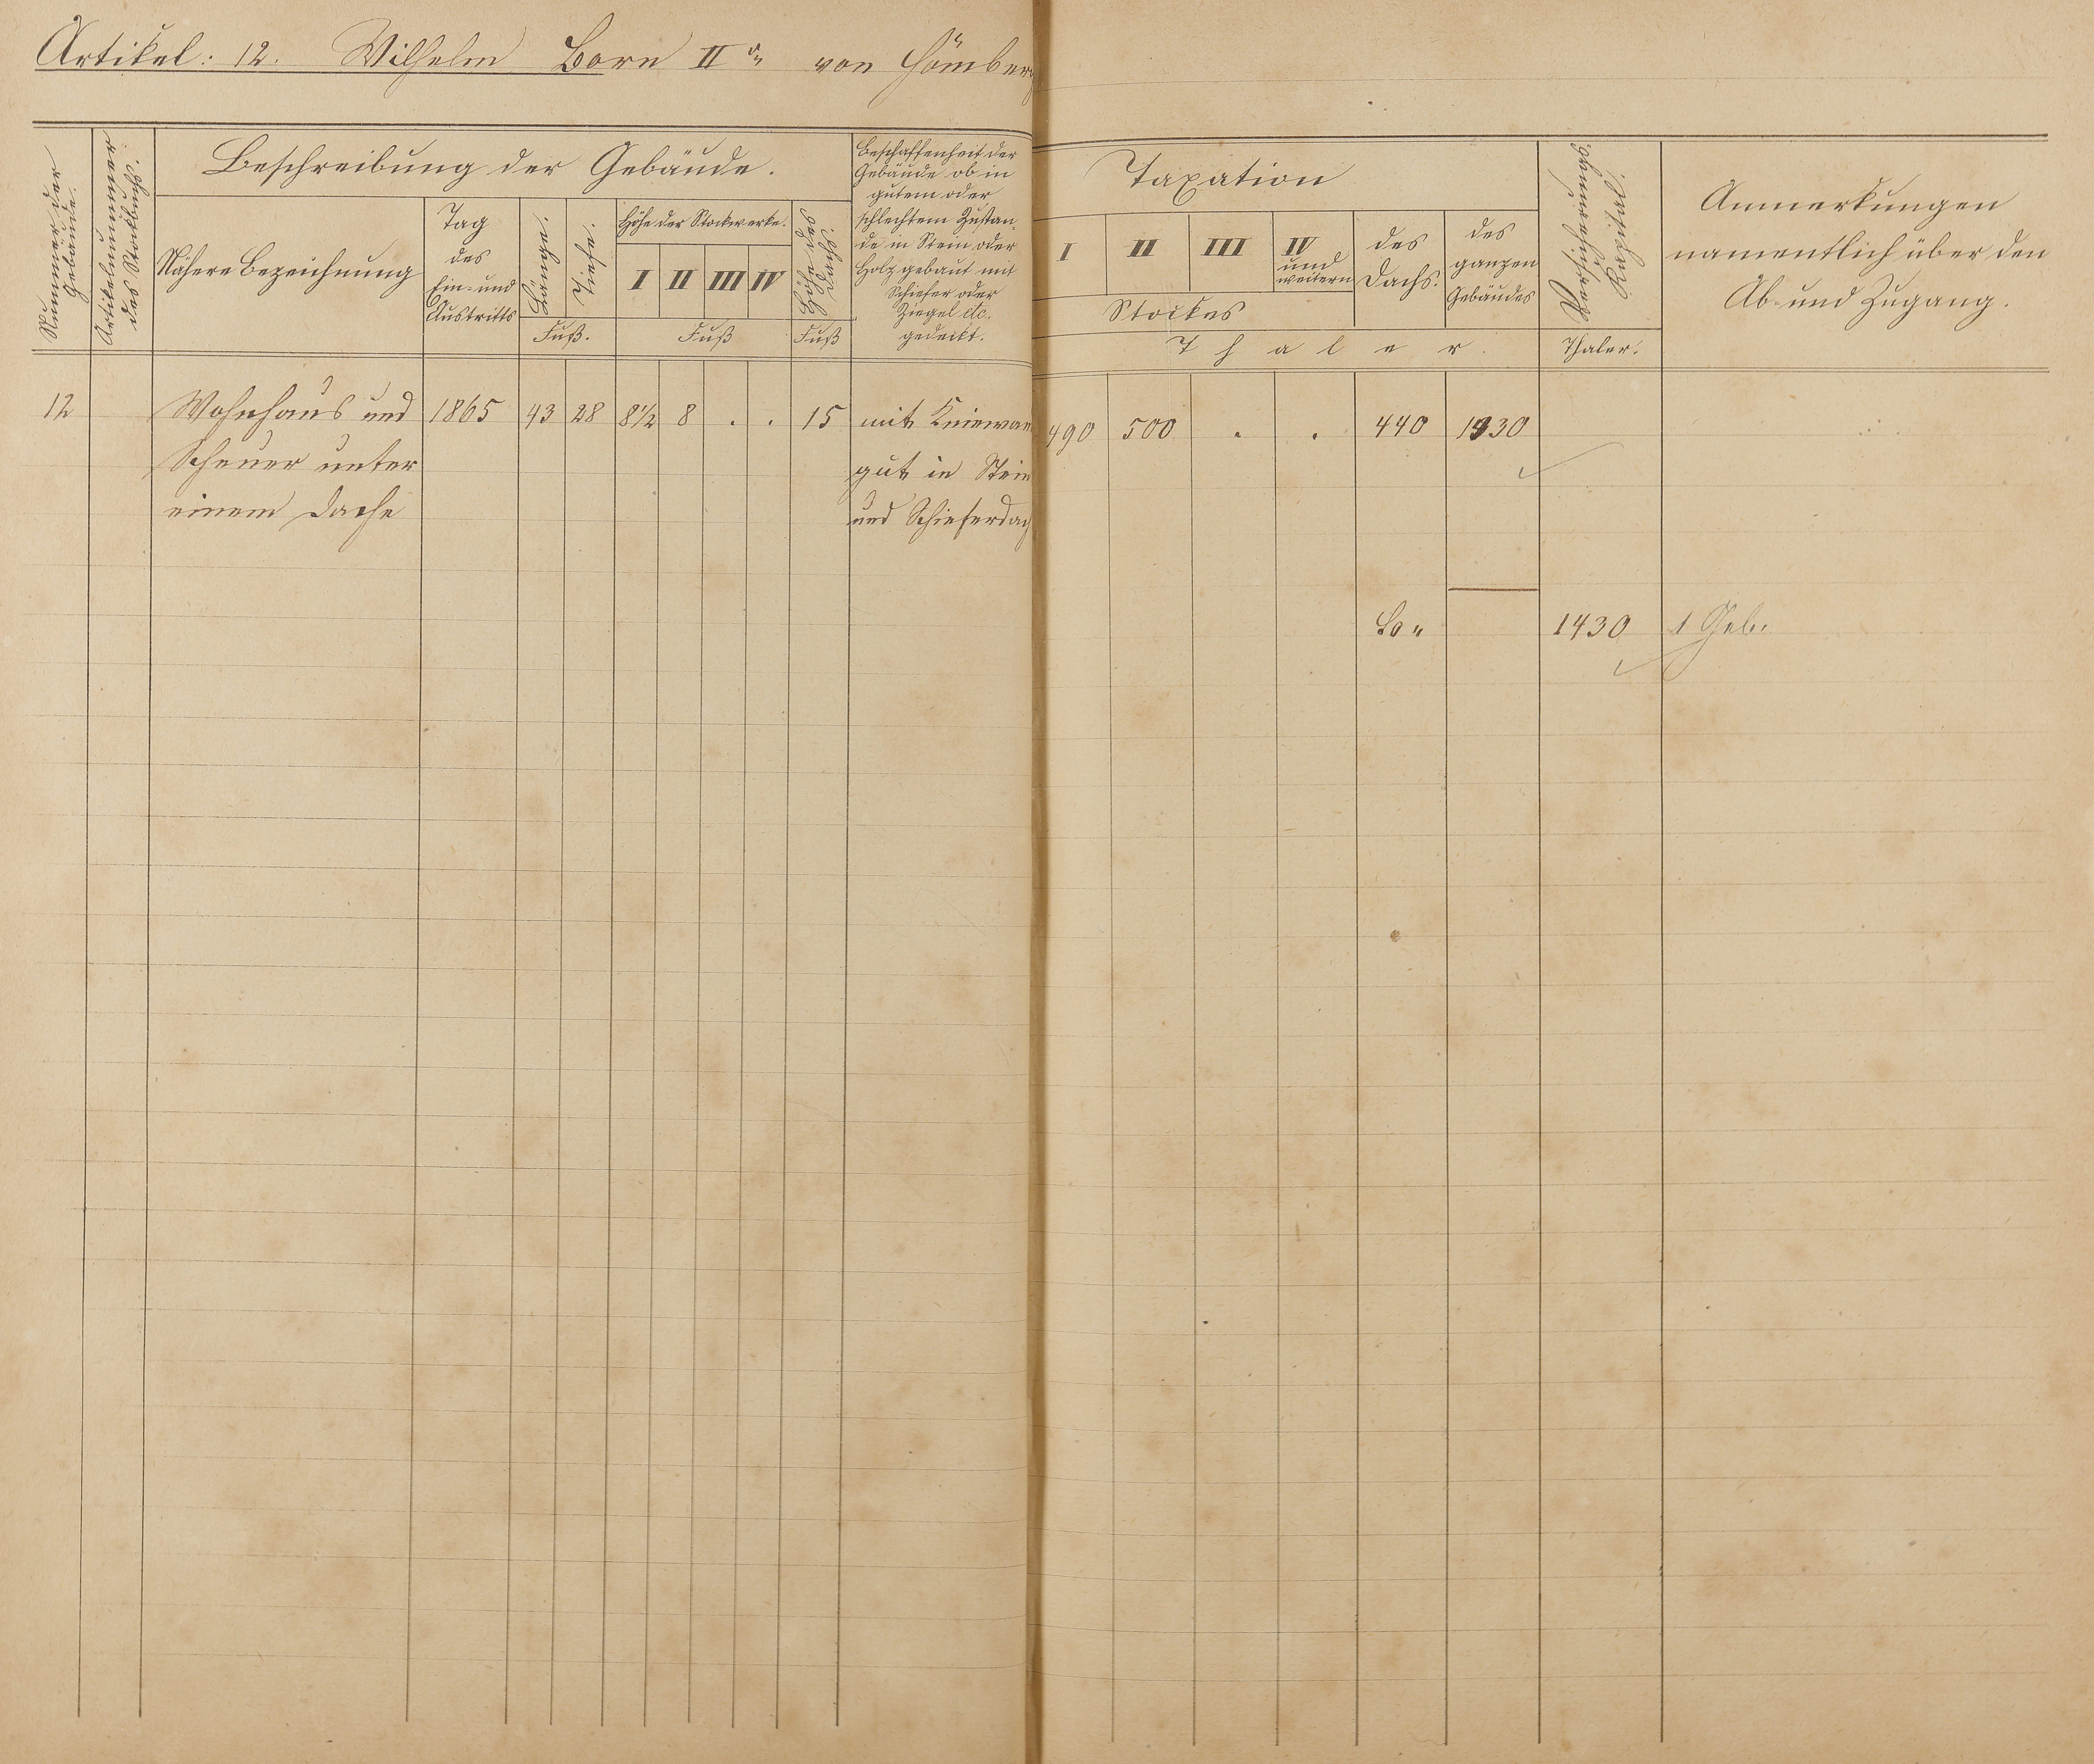 Artikel: 12. Wilhelm Born IIr von Hömberg
Nummer der
Gebäude.
Artikelnummer
des Stockbuchs.
Beschreibung der Gebäude.
Nähere Bezeichnung
Tag
des
Ein- und
Austritts
Länge.
Tiefe.
Fuß.
Höhe der Stockwerke.
I II III IV
Fuß
Höhe des
Dachs.
Fuß
Beschaffenheit der
Gebäude ob in
gutem oder
schlechtem Zustan-
de in Stein oder
Holz gebaut mit
Schiefer oder
Ziegel etc.
gedeckt.
Taxation
I II III IV
und
weitern
Stockes
des
Dachs.
des
ganzen
Gebäudes
Thaler.
Versicherungs
Kapital.
Thaler.
Anmerkungen
namentlich über den
Ab- und Zugang.
12 Wohnhaus und 1865 43 28 8½ 8 . . 15 mit Kniewan 490 500 . . 440 1430
Scheuer unter gut in Stein
einem Dache und Schieferdach
1430 1 Geb.